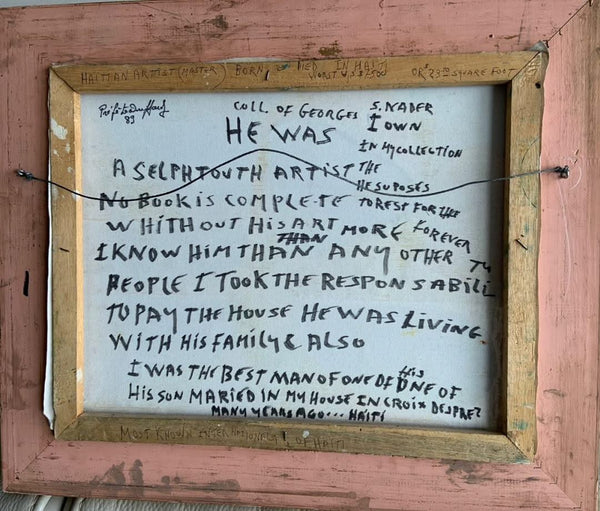 HAITIAN ARTIST (MASTER) BORN & DIED IN HAITI
WORST US $7500 OR 23RD SQUARE FOOT
83
COLL. OF GEORGES S. NADER
HE WAS I OWN
IN MY COLLECTION
A SELPHTOUTH ARTIST THE
HE SUPOSES
NO BOOK IS COMPLETE TO REST FOR THE
WHITHOUT HIS ART MORE FOREVER
THAN
I KNOW HIM THAN ANY OTHER
PEOPLE I TOOK THE RESPONSABILI TY
TO PAY THE HOUSE HE WAS LIVING
WITH HIS FAMILY & ALSO
I WAS THE BEST MAN OF ONE OF HIS ONE OF
HIS SON MARIED IN MY HOUSE IN CROIX DESPREZ
MANY YEARS AGO... HAITI
MOST KNOWN INTERNATIONALY OF HAITI